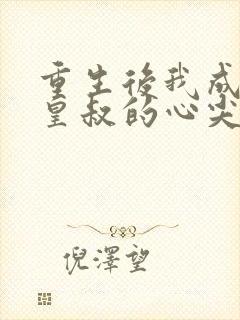 重生後我成
皇叔的心尖
倪澤望